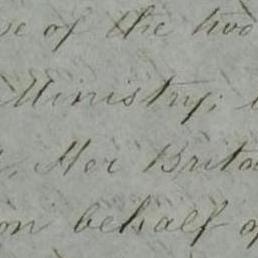 se of the two
Ministry;
Her Britan
on behalf of